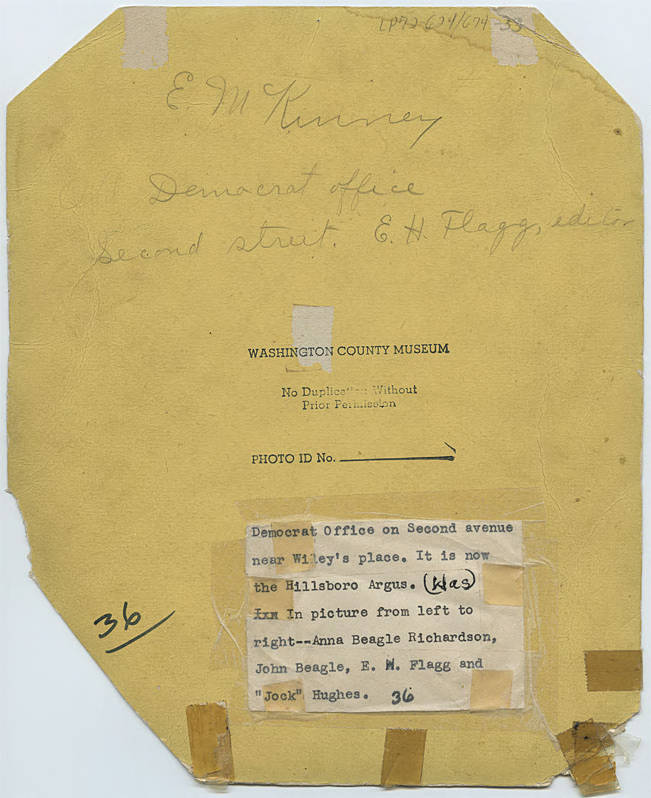 LP72-674/674-33
E. McKinney
Democrat office
Second street. E. H. Flagg, editor
WASHINGTON COUNTY MUSEUM
No Duplication Without
Prior Permission
PHOTO ID No.
Democrat Office on Second avenue
near Wiley's place. It is now
the Hillsboro Argus. (Has)
In picture from left to
right--Anna Beagle Richardson,
John Beagle, E. H. Flagg and
"Jock" Hughes. 36
36